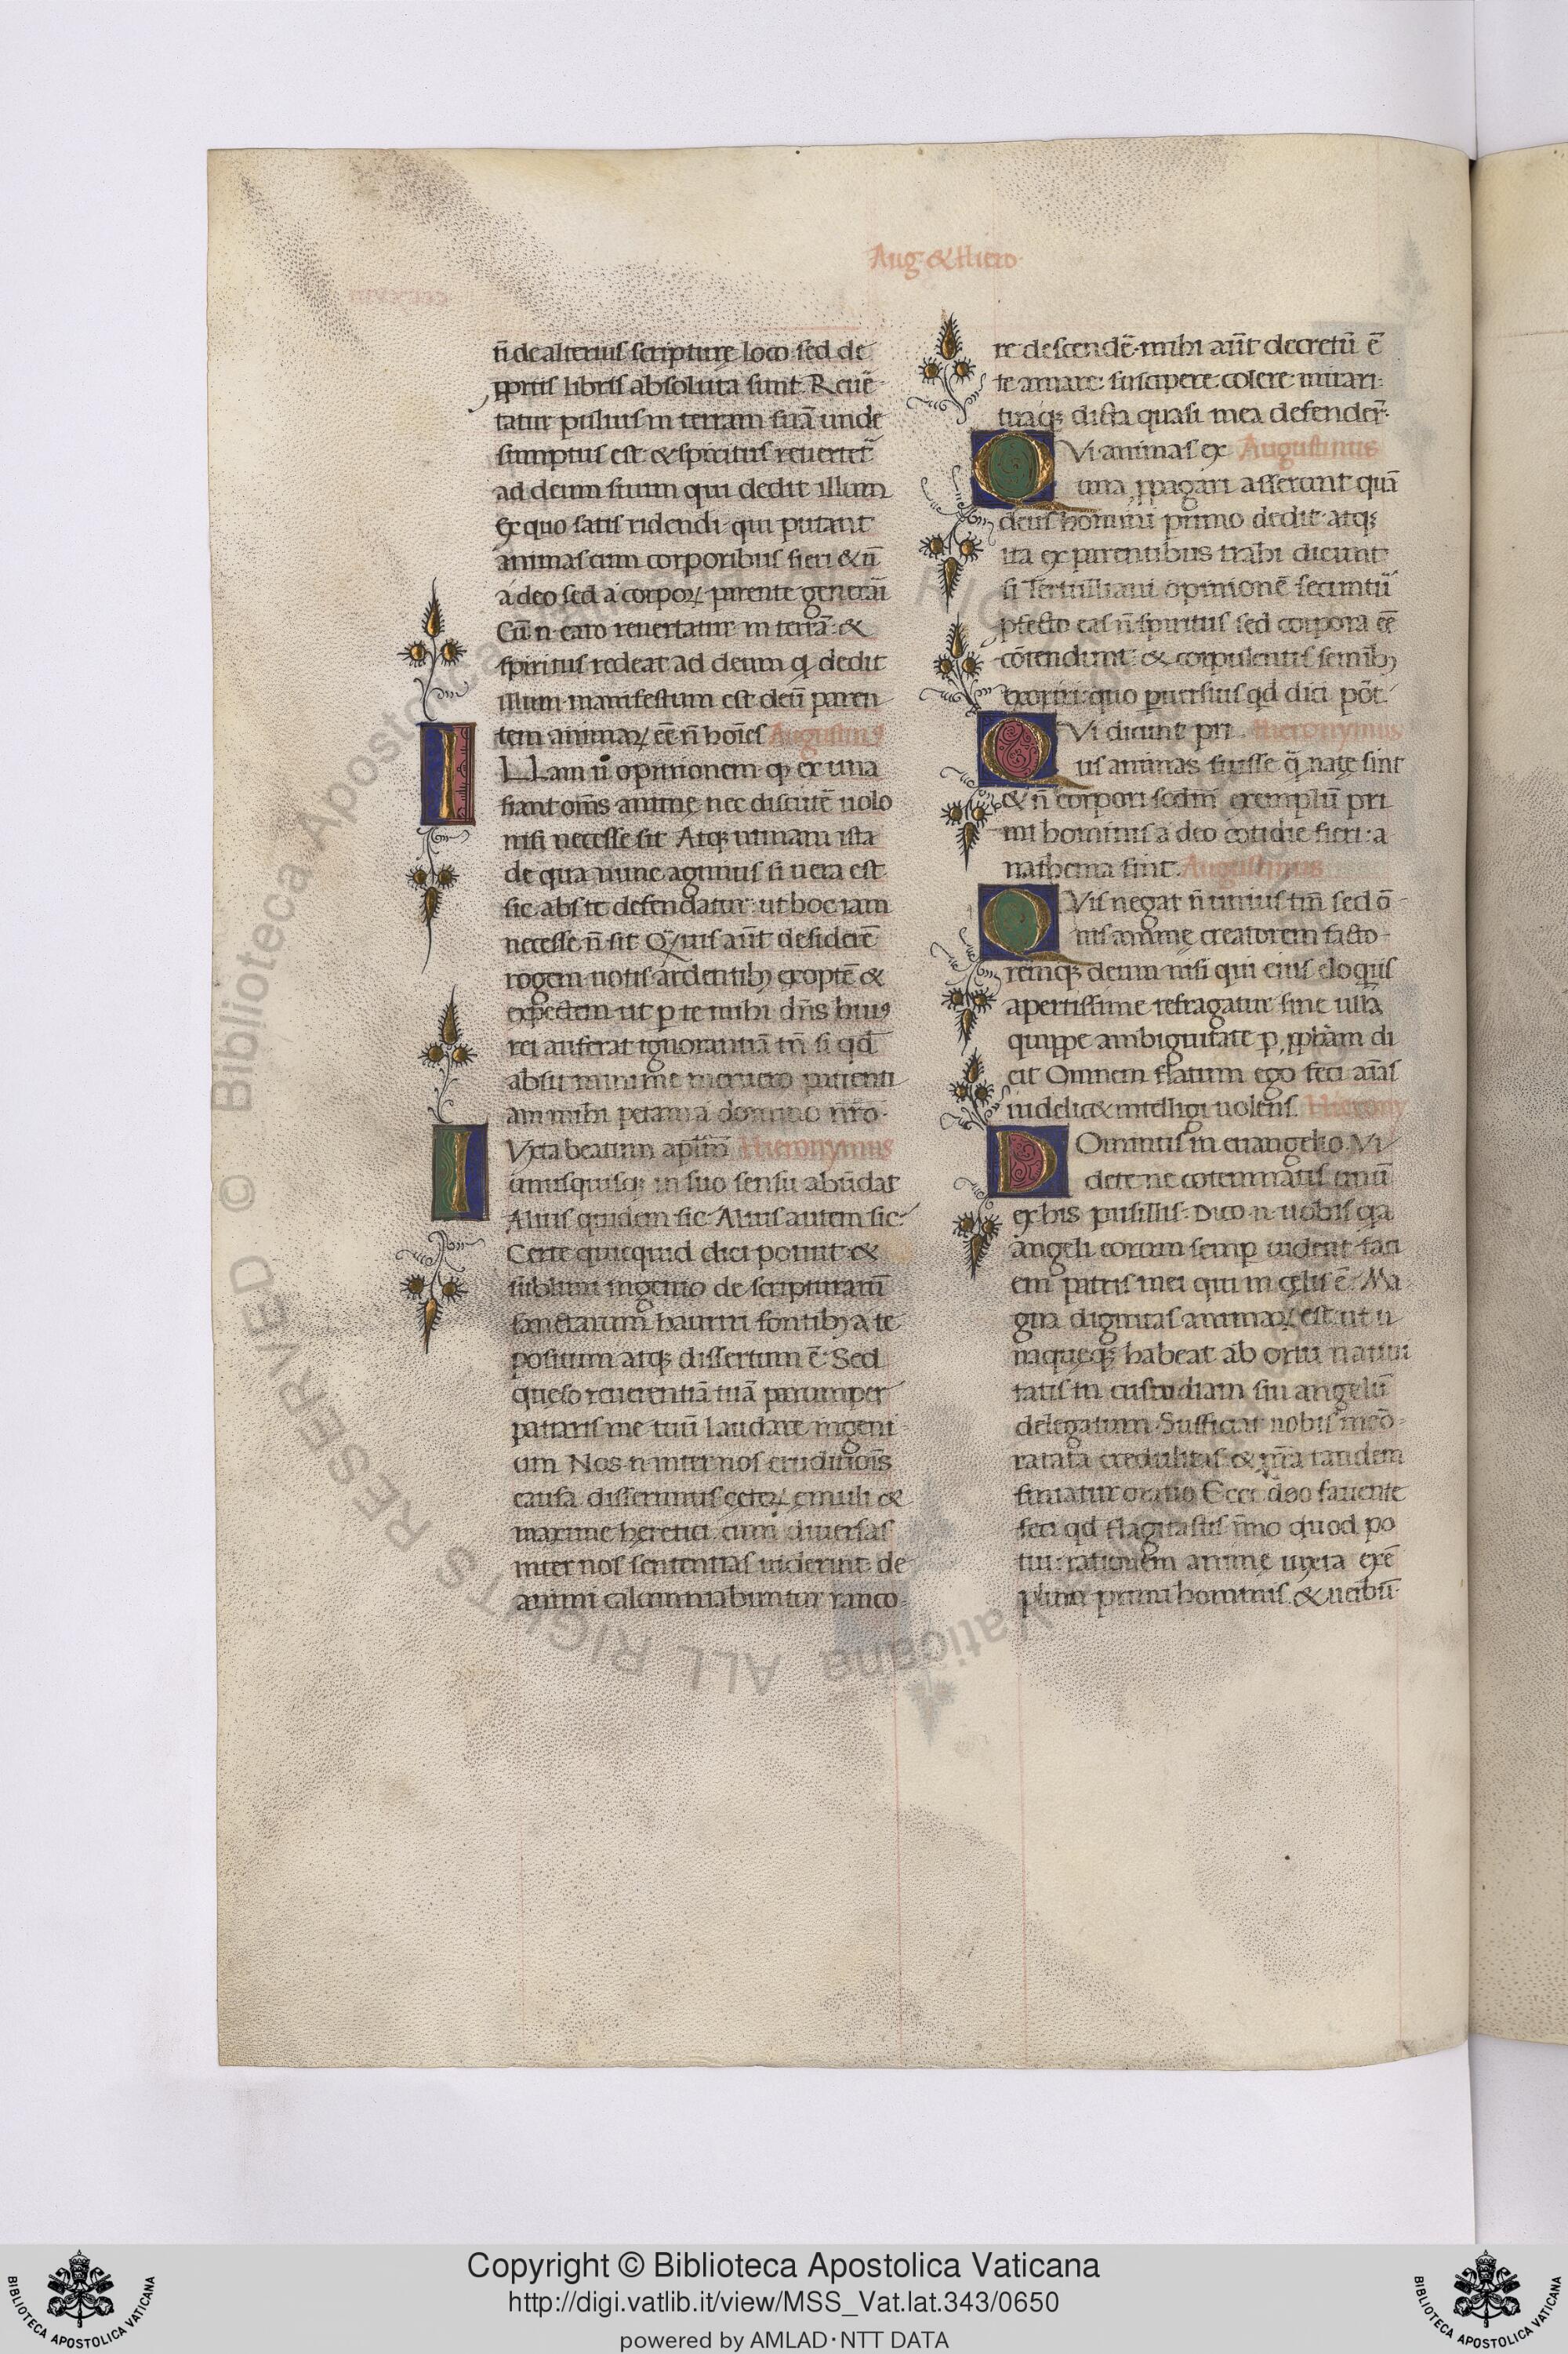 Aug & Hiero
n̄ de alterius scripturę loco sed de
ꝓpriis libris absoluta sunt. Reuē
tatur puluis in terram suā unde
sumptus est & spiritus reuertet̄
ad deum suum qui dedit illum
Ex quo satis ridendi qui putant
animas cum corporibus fieri & n̄
a deo sed a corpoꝝ parente generāi
Cū n caro reuertatur in terrā &
spiritus redeat ad deum q dedit
illum manifestum est deū paren
tem animaꝝ eē n̄ hoīes Augustinꝰ
ILLam u opinionem qᷓ ex una
fiant om̄s animę nec discutē uolo
nisi necesse sit Atqꝫ utinam ista
de qua nunc agimus si uera est
sic abs te defendatur ut hoc iam
necesse n̄ sit Qᷓuis aūt desiderē
rogem uotis ardentibꝫ exoptē &
expectem ut ꝑ te mihi dn̄s huiꝰ
rei auferat ignorantiā tn̄ si qd̄
absit minime meruero patienti
am mihi petam a domino nr̄o
IVxta beatum aplm̄ Hieronymus
unusquisqꝫ in suo sensu abūdat
Alius quidem sic Alius autem sic
Certe quicquid dici potuit &
sublimi ingenio de scripturarū
sanctarum hauriri fontibꝫ a te
positum atqꝫ dissertum ē Sed
queso reuerentiā tuā parumper
patiaris me tuū laudare ingeni
um Nos n inter nos eruditiōis
causa disserimus ceteꝝ ęmuli &
maxime heretici cum diuersas
inter nos sententias uiderint de
animi calumniabuntur ranco
re descendē mihi aūt decretū ē
te amare suscipere colere mirari
tuaqꝫ dicta quasi mea defender̄
QVi animas ex Augustinus
una ꝓpagari asserunt quā
deus homini primo dedit atqꝫ
ita ex parentibus trahi dicunt
si Tertulliani opinionē secuntū
ꝓfecto eas n̄ spiritus sed corpora eē
cōtendunt & corpulentis seminibꝫ
exoriri quo ꝑuersius qd dici pōt
QVi dicunt pri Hieronymus
us animas fuisse qᷓ natę sint
& n̄ corpori sedm̄ exemplū pri
mi hominis a deo cotidie fieri a
nathema sint Augustinus
QVis negat n̄ unius tm̄ sed ō
nis animę creatorem facto
remqꝫ deum nisi qui eius eloquiis
apertissime refragatur sine ulla
quippe ambiguitate ꝑ ꝓphām di
cit Omnem flatum ego feci aīas
uidelicet intelligi uolens Hierony
DOminus in euangelio Vi
dete ne cotemnatis unū
ex his pusillis Dico n uobis qa
angeli eorum semꝑ uident faci
em patris mei qui in cęlis ē Ma
gna dignitas animaꝝ est ut u
naqueqꝫ habeat ab ortu natiui
tatis in custodiam sui angelū
delegatum Sufficiat nobis incō
ratata credulitas & nr̄a tandem
finiatur oratio Ecce deo fauente
feci qd flagitastis īmo quod po
tui rationem animę iuxta exē
plum primi hominis & uerbū
Copyright © Biblioteca Apostolica Vaticana
http://digi.vatlib.it/view/MSS_Vat.lat.343/0650
powered by AMLAD·NTT DATA
BIBLIOTECA APOSTOLICA VATICANA
BIBLIOTECA APOSTOLICA VATICANA